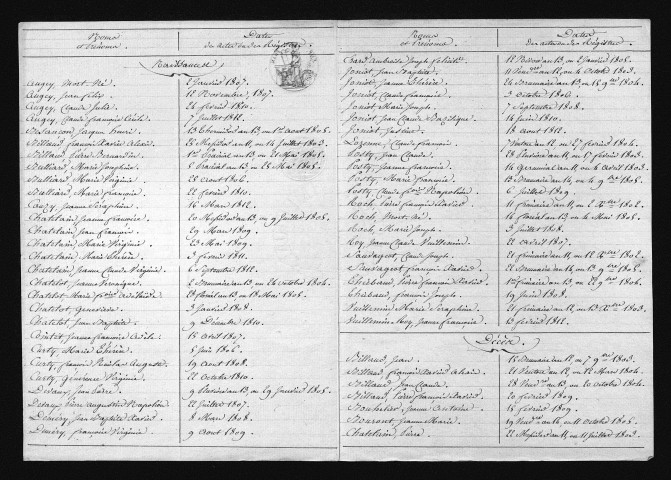 Noms et Prénoms
Dates des actes ou des Registres
Naissances
Augey, Mort-Né. 2 Janvier 1807.
Augey, Jean félix 12 Novembre 1807.
Augey, Claude Julie 26 février 1810.
Augey, Claude françoise Cécile 7 Juillet 1812.
13 Thermidor an 13 ou 1er aout 1805.
Billaud françois Xavier Alexis. 25 Messidor an 11 ou 14 Juillet 1803.
Billaud, Pierre Bernardin 1er Prairial an 13 ou 21 Mai 1805.
Bulliard, Marie Josephine 8 Prairial an 13 ou 28 Mai 1805.
Bulliard, Marie Virginie 28 aout 1806.
Bulliard, Marie françoise 22 février 1810.
Cruzy, Jeanne Séraphine 16 Mars 1812.
Chatelain Jeanne françoise 20 Messidor an 13 ou 9 Juillet 1805.
Chatelain Jean françois 29 Mars 1809.
Chatelain, Marie Virginie 23 Mai 1809.
Chatelain, Marie Thérèse 3 février 1811.
Chatelain Jeanne Claude Virginie. 6 Septembre 1812.
Chatelet, Jeanne Véronique 2 Brumaire an 13 ou 24 octobre 1804.
Chatelet Marie fçoise Adélaïde 28 floréal an 13 ou 18 Mai 1805.
Chatelet, Geneviève 3 Janvier 1808.
Chatelet, Jean Baptiste 9 Décembre 1810.
Jeanne françoise Cécile. 15 avril 1807.
Curty, Marie Thérèse 5 Juin 1806.
Curty, françois Auguste. 19 aout 1808.
Curty, Générense Virginie. 22 octobre 1810.
9 Pluviose an 13 ou 29 Janvier 1805.
Pierre Augustin Napoléon 22 Juillet 1807.
Jean Baptiste Xavier 8 Mars 1808.
françoise Virginie. 9 aout 1809.
Noms et Prénoms
Dates des actes ou des Registres
Ambroise Joseph félicité 12 Nivose an 13 ou 2 Janvier 1805.
Joniot, Jean Baptiste 11 Vendre an 11 ou 4 octobre 1803.
Joniot, Jeanne Thérèse 24 Brumaire an 13 ou 15 9bre 1804.
Joniot, Claude françoise 3 octobre 1806.
Joniot, Marie Joseph 7 Septembre 1808.
Joniot, Jean Claude Basilique 14 Juin 1810.
Joniot Justin 18 aout 1812.
Lozenne, Claude françois 7 Ventose an 12 ou 27 février 1804.
Petty, Jean Claude 28 Pluviose an 11 ou 17 février 1803.
Petty, Jeanne françoise 14 Germinal an 11 ou 4 avril 1803.
Petty, Marie françoise 18 Brumaire an 14 ou 9 9bre 1805.
Petty Claude fçois Napoléon 6 Juillet 1809.
Roch, Pierre françois Xavier 11 frimaire an 11 ou 2 Xbre 1802.
Roch, Mort-né 14 floréal an 13 ou 4 Mai 1805.
Roch, Marie Joseph 3 Juillet 1808.
Roy, Jeanne Claude Vuillemin 22 avril 1807.
Sauvageot, Claude Joseph. 21 frimaire an 11 ou 12 Xbre 1802.
Sauvageot françois Xavier. 22 Brumaire an 14 ou 13 9bre 1805.
Thiébaud, Pierre françois Xavier 1er frimaire an 13 ou 22 9bre 1804.
Thiébaud, françois Joseph. 19 Juin 1808.
Vuillemin Marie Séraphine 21 frimaire an 12 ou 13 Xbre 1803.
Vuillemin Roy, Jeanne françoise 13 février 1812.
Décès.
Billaud, Jean. 15 Brumaire an 12 ou 7 9bre 1803.
Billaud françois Xavier Alexis. 21 Ventose an 12 ou 12 Mars 1804.
Billaud, Jean Claude 28 Vendre an 13 ou 20 octobre 1804.
Billaud, Pierre françois Xavier 20 février 1809.
Jeanne Antoine 15 février 1809.
Jeanne Marie 19 Vendre an 14 ou 11 octobre 1805.
Chatelain, Pierre. 22 Messidor an 11 ou 11 Juillet 1803.